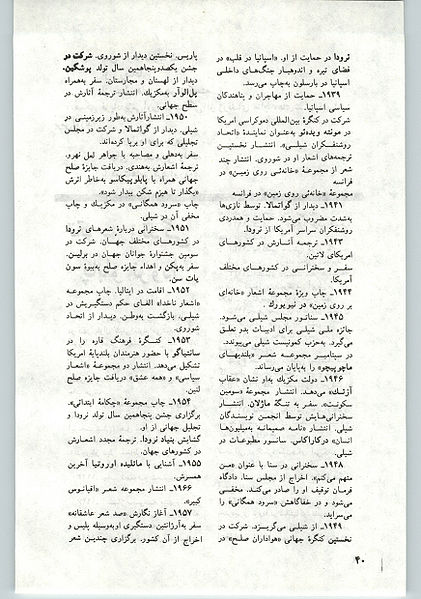 نرودا در حمایت از او. «اسپانیا در قلب» در
فضای تیره و اندوهبار جنگ‌های داخلی
اسپانیا در بارسلون به‌چاپ می‌رسد.
۱۹۳۹ـ حمایت از مهاجران و پناهندگان
سیاسی اسپانیا.
شرکت در کنگرهٔ بین‌المللی دموکراسی امریکا
در مونته ویدئو به‌عنوان نمایندهٔ «اتحاد
روشنفکران شیلی». انتشار نخستین
ترجمه‌های اشعار او در شوروی. انتشار چند
شعر از مجموعهٔ «خانه‌ئی روی زمین» در
فرانسه
مجموعهٔ «خانه‌ئی روی زمین» در فرانسه
۱۹۴۱ـ دیدار از گواتمالا. توسط نازی‌ها
به‌شدت مضروب می‌شود. حمایت و همدردی
روشنفکران سراسر آمریکا از نرودا.
۱۹۴۳ـ ترجمه آثارش در کشورهای
امریکای لاتین.
سفر و سخنرانی در کشورهای مختلف
آمریکا.
۱۹۴۴ـ چاپ ویژهٔ مجموعهٔ اشعار «خانه‌ای
بر روی زمین» در نیویورک.
۱۹۴۵ـ سناتور مجلس شیلی می‌شود.
جائزه ملی شیلی برای ادبیات بدو تعلق
می‌گیرد. به‌حزب کمونیست شیلی می‌پیوندد.
در سپتامبر مجموعه شعر «بلندیهای
ماچوپیچو» را به‌پایان می‌رساند.
۱۹۴۶ـ دولت مکزیک به‌او نشان «عقاب
آزتک» می‌دهد. انتشار مجموعهٔ «سومین
سکونت». سفر به تنگهٔ ماژلان. انتشار
سخنرانی‌هایش توسط انجمن نویسندگان
شیلی. انتشار «نامه صمیمانه به‌میلیون‌ها
انسان» درکاراکاس. سانسور مطبوعات در
شیلی.
۱۹۴۸ـ سخنرانی در سنا با عنوان «من
متهم می‌کنم». اخراج از مجلس سنا. دادگاه
فرمان توقیف او را صادر می‌کند. مخفی
می‌شود و در خفاگاهش «سرود همگانی» را
می‌سراید.
۱۹۴۹ـ از شیلی می‌گریزد. شرکت در
نخستین کنگرهٔ جهانی «هواداران صلح» در
پاریس. نخستین دیدار از شوروی. شرکت در
جشن یکصدوپنجاهمین سال تولد پوشگین.
دیدار از لهستان و مجارستان. سفر به‌همراه
پل‌الوآر به‌مکزیک. انتشار ترجمهٔ آثارش در
سطح جهانی.
۱۹۵۰ـ انتشارآثارش به‌طور زیرزمینی در
شیلی. دیدار از گواتمالا و شرکت در مجلس
تجلیلی که برای او برپا کرده‌اند.
سفر به‌دهلی و مصاحبه با جواهر لعل نهرو.
ترجمهٔ اشعارش به‌هندی. دریافت جایزهٔ صلح
جهانی همراه با پابلوپیکاسو به‌خاطر اثرش
«بگذار تا هیزم شکن بیدار شود».
چاپ «سرود همگانی» در مکزیک و چاپ
مخفی آن در شیلی.
۱۹۵۱ـ سخنرانی دربارهٔ شعرهای نرودا
در کشورهای مختلف جهان. شرکت در
سومین جشنوارهٔ جوانان جهان در برلین.
سفر به‌پکن و اهداء جایزه صلح به‌بیوه سون
یات سن.
۱۹۵۲ـ اقامت در ایتالیا. چاپ مجموعه
«اشعار ناخدا» الغای حکم دستگیریش در
شیلی. بازگشت به‌وطن. دیدار از اتحاد
شوروی.
۱۹۵۳ـ کنگرهٔ فرهنگ قاره را در
سانتیاگو با حضور هنرمندان بلندپایهٔ آمریکا
تشکیل می‌دهد. انتشار دو مجموعهٔ «اشعار
سیاسی» و «همه عشق» دریافت جایزه صلح
لنین.
۱۹۵۴ـ چاپ مجموعهٔ «چکامهٔ ابتدائی».
برگزاری جشن پنجاهمین سال تولد نرودا و
تجلیل جهانی از او.
گشایش بنیاد نرودا. ترجمهٔ مجدد اشعارش
در کشورهای جهان.
۱۹۵۵ـ آشنایی با ماتیلده اوروتیا آخرین
همسرش.
۱۹۶۶ـ انتشار مجموعه شعر «اقیانوس
کبیر».
۱۹۵۷ـ آغاز نگارش «صد شعر عاشقانه»
سفر به‌آرژانتین. دستگیری او‌به‌وسیله پلیس و
اخراج از آن کشور. برگزاری چندین شعر
۴۰